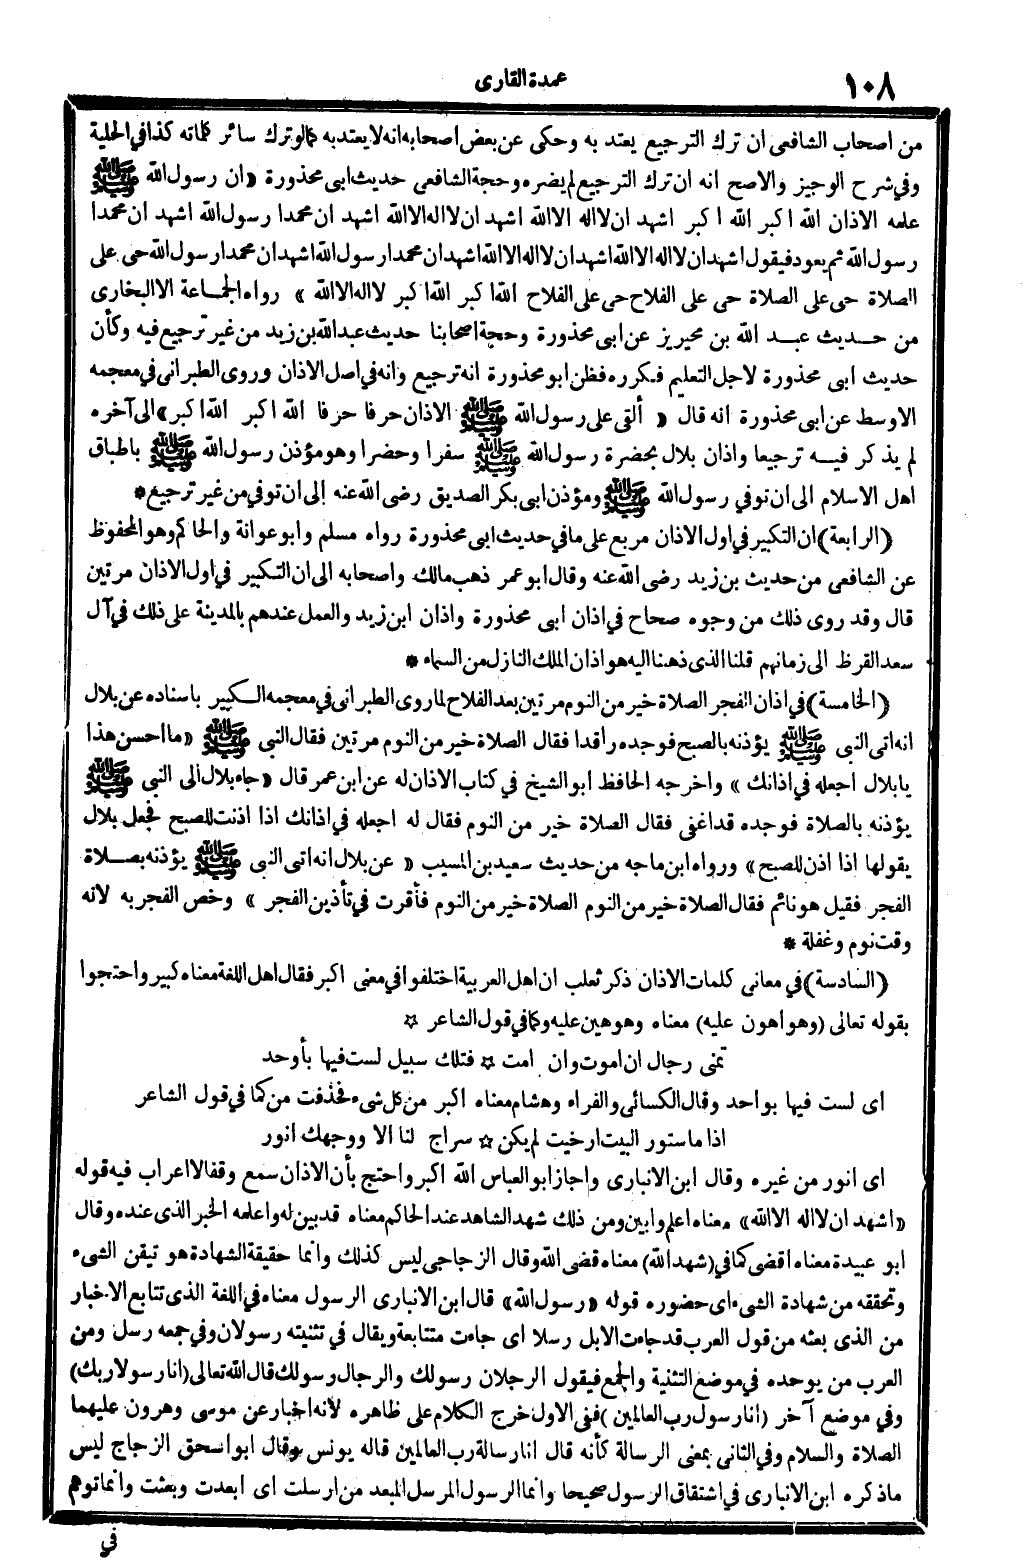 ١٠٨
عمدة القارى
من اصحاب الشافعى ان ترك الترجيع يعتد به وحكى عن بعض اصحابه انه لا يعتد به كما لو ترك سائر كلماته كذا فى الحلية
وفى شرح الوجيز والاصح انه ان ترك الترجيع لم يضره وحجة الشافعى حديث ابى محذورة «ان رسول الله ﷺ
علمه الاذان الله اكبر الله اكبر اشهد ان لا اله الا الله اشهد ان لا اله الا الله اشهد ان محمدا رسول الله اشهد ان محمدا
رسول الله ثم يعود فيقول اشهد ان لا اله الا الله اشهد ان لا اله الا الله اشهد ان محمدا رسول الله اشهد ان محمدا رسول الله حى على
الصلاة حى على الصلاة حى على الفلاح حى على الفلاح الله اكبر الله اكبر لا اله الا الله» رواه الجماعة الا البخارى
من حديث عبد الله بن محيريز عن ابى محذورة وحجة اصحابنا حديث عبد الله بن زيد من غير ترجيع فيه وكأن
حديث ابى محذورة لاجل التعليم فكرره فظن ابو محذورة انه ترجيع وانه فى اصل الاذان وروى الطبرانى فى معجمه
الاوسط عن ابى محذورة انه قال «ألقى على رسول الله ﷺ الاذان حرفا حرفا الله اكبر الله اكبر» الى آخره
لم يذكر فيه ترجيعا واذان بلال بحضرة رسول الله ﷺ سفرا وحضرا وهو مؤذن رسول الله ﷺ باطباق
اهل الاسلام الى ان توفي رسول الله ﷺ ومؤذن ابى بكر الصديق رضى الله عنه الى ان توفي من غير ترجيع *
(الرابعة) ان التكبير فى اول الاذان مربع على ما فى حديث ابى محذورة رواه مسلم وابو عوانة والحاكم وهو المحفوظ
عن الشافعى من حديث بن زيد رضى الله عنه وقال ابو عمر ذهب مالك واصحابه الى ان التكبير فى اول الاذان مرتين
قال وقد روى ذلك من وجوه صحاح فى اذان ابى محذورة واذان ابن زيد والعمل عندهم بالمدينة على ذلك فى آل
سعد القرظ الى زمانهم قلنا الذى ذهبنا اليه هو اذان الملك النازل من السماء *
(الخامسة) فى اذان الفجر الصلاة خير من النوم مرتين بعد الفلاح لما روى الطبرانى فى معجمه الكبير باسناده عن بلال
انه اتى النبى ﷺ يؤذنه بالصبح فوجده راقدا فقال الصلاة خير من النوم مرتين فقال النبى ﷺ «ما أحسن هذا
يا بلال اجعله فى اذانك» واخرجه الحافظ ابو الشيخ فى كتاب الاذان له عن ابن عمر قال «جاء بلال الى النبى ﷺ
يؤذنه بالصلاة فوجده قد اغفى فقال الصلاة خير من النوم فقال له اجعله فى اذانك اذا اذنت للصبح فجعل بلال
يقولها اذا اذن للصبح» ورواه ابن ماجه من حديث سعيد بن المسيب «عن بلال انه اتى النبى ﷺ يؤذنه بصلاة
الفجر فقيل هو نائم فقال الصلاة خير من النوم الصلاة خير من النوم فأقرت فى تأذين الفجر» وخص الفجر به لانه
وقت نوم وغفلة *
(السادسة) فى معانى كلمات الاذان ذكر ثعلب ان اهل العربية اختلفوا فى معنى اكبر فقال اهل اللغة معناه كبير واحتجوا
بقوله تعالى (وهو اهون عليه) معناه وهو هين عليه وكما فى قول الشاعر ☆
تمنى رجال ان اموت وان امت ☆ فتلك سبيل لست فيها بأوحد
اى لست فيها بواحد وقال الكسائى والفراء وهشام معناه اكبر من كل شىء فحذفت من كما فى قول الشاعر
اذا ما ستور البيت ارخيت لم يكن ☆ سراج لنا الا ووجهك انور
اى انور من غيره وقال ابن الانبارى واجاز ابو العباس الله اكبر واحتج بأن الاذان سمع وقفا لا اعراب فيه قوله
«اشهد ان لا اله الا الله» معناه اعلم وابين ومن ذلك شهد الشاهد عند الحاكم معناه قد بين له واعلمه الخبر الذى عنده وقال
ابو عبيدة معناه اقضى كما فى (شهد الله) معناه قضى الله وقال الزجاجى ليس كذلك وانما حقيقة الشهادة هو تيقن الشىء
وتحققه من شهادة الشىء اى حضوره قوله «رسول الله» قال ابن الانبارى الرسول معناه فى اللغة الذى تتابع الاخبار
من الذى بعثه من قول العرب قد جاءت الابل رسلا اى جاءت متتابعة ويقال فى تثنيته رسولان وفى جمعه رسل ومن
العرب من يوحده فى موضع التثنية والجمع فيقول الرجلان رسولك والرجال رسولك قال الله تعالى (انا رسولا ربك)
وفى موضع آخر (انا رسول رب العالمين) ففى الاول خرج الكلام على ظاهره لأنه اخبار عن موسى وهرون عليهما
الصلاة والسلام وفى الثانى بمعنى الرسالة كأنه قال انا رسالة رب العالمين قاله يونس وقال ابو اسحق الزجاج ليس
ما ذكره ابن الانبارى فى اشتقاق الرسول صحيحا وانما الرسول المرسل المبعد من ارسلت اى ابعدت وبعثت وانما توهم
في